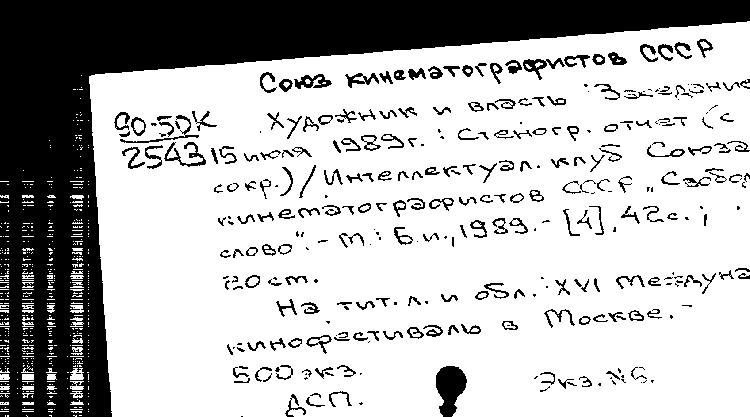 Союз кинематографистов СССР
90-5DK
2543
Художник и власть : Заседание
15 июля 1989г. : Стеногр. отчет (с
сокр.) / Интеллектуал. клуб Союза
кинематографистов СССР „Свобод
слово". - М.: Б.и., 1989. - [4], 42с. ;
20 cm.
На тит. л. и обл.: XVI Междуна
кинофестиваль в Москве. -
500 экз.
ДСП.
Экз. N6.